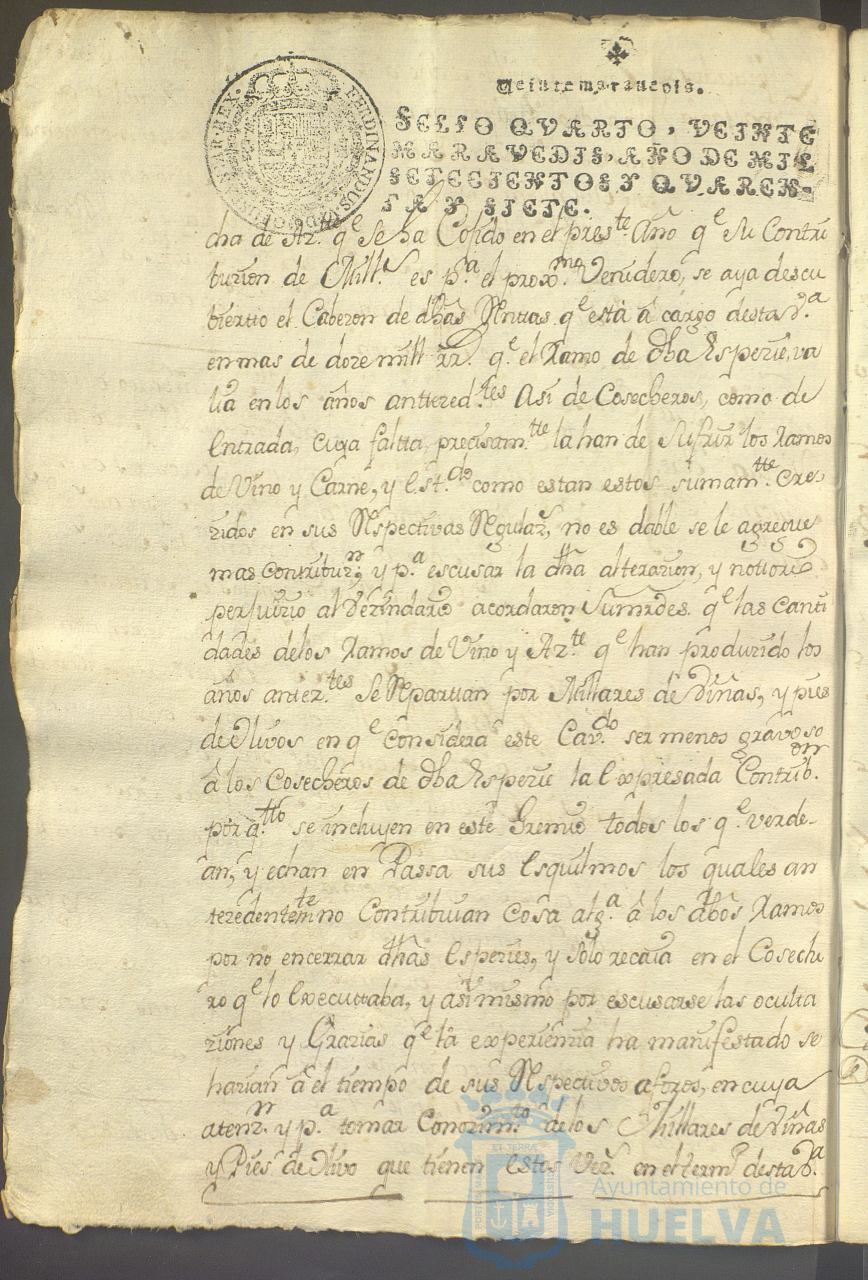 Veinte maravedis.
SELLO QVARTO, VEINTE
MARAVEDIS, AÑO DE MIL
SETECIENTOS Y QVAREN-
TA Y SIETE.
FERDINANDUS VI D.G. HISPANIAR REX
cha de Azte qe se ha Cojido en el preste Año qe su Contri
bucion de Mills es pa el proxmo Venidero, se aya descu
bierto el Cabezon de dhas Rentas qe està â cargo desta Va
en mas de doze mill rr. qe el Ramo de dha Especie, va
lia en los años antteredtes Asi de Cosecheros, como de
Entrada, cuya faltta, precisamtte la han de sufrir los Ramos
de Vino y Carne, y estdo como estan estos sumamtte cre
zidos en sus Respectivas Regulaz, no es dable se le agregue
mas contribuzn, y pa escusar la dha alterazion, y nottorio
perjuizio al Vezindario acordaron sus mrdes qe las canti
dades de los Ramos de Vino y Azte qe han produzido los
años antteztes se Repartan por Millares de Viñas, y pies
de Olivos en qe considera este Cavdo ser menos gravoso
â los Cosecheros de dha Especie la Expresada Contribon
por qtto se incluyen en este Gremio todos los qe verde-
an, y echan en Passa sus Esquilmos los quales an
tezedentemte no Contribuian Cosa alga â los dhos Ramos
por no encerrar dhas Especies, y solo recaia en el Coseche
ro qe lo Executtaba, y asi mismo por escusarse las oculta
ziones y Grazias qe la experienzia ha manifestado se
harian â el tiempo de sus Respectivos aforos, en cuya
atenzn y pa tomar Conozimto de los Millares de Viñas
y Pies de Olivo que tienen estos Vezs en el termo desta Va
Ayuntamiento de
HUELVA